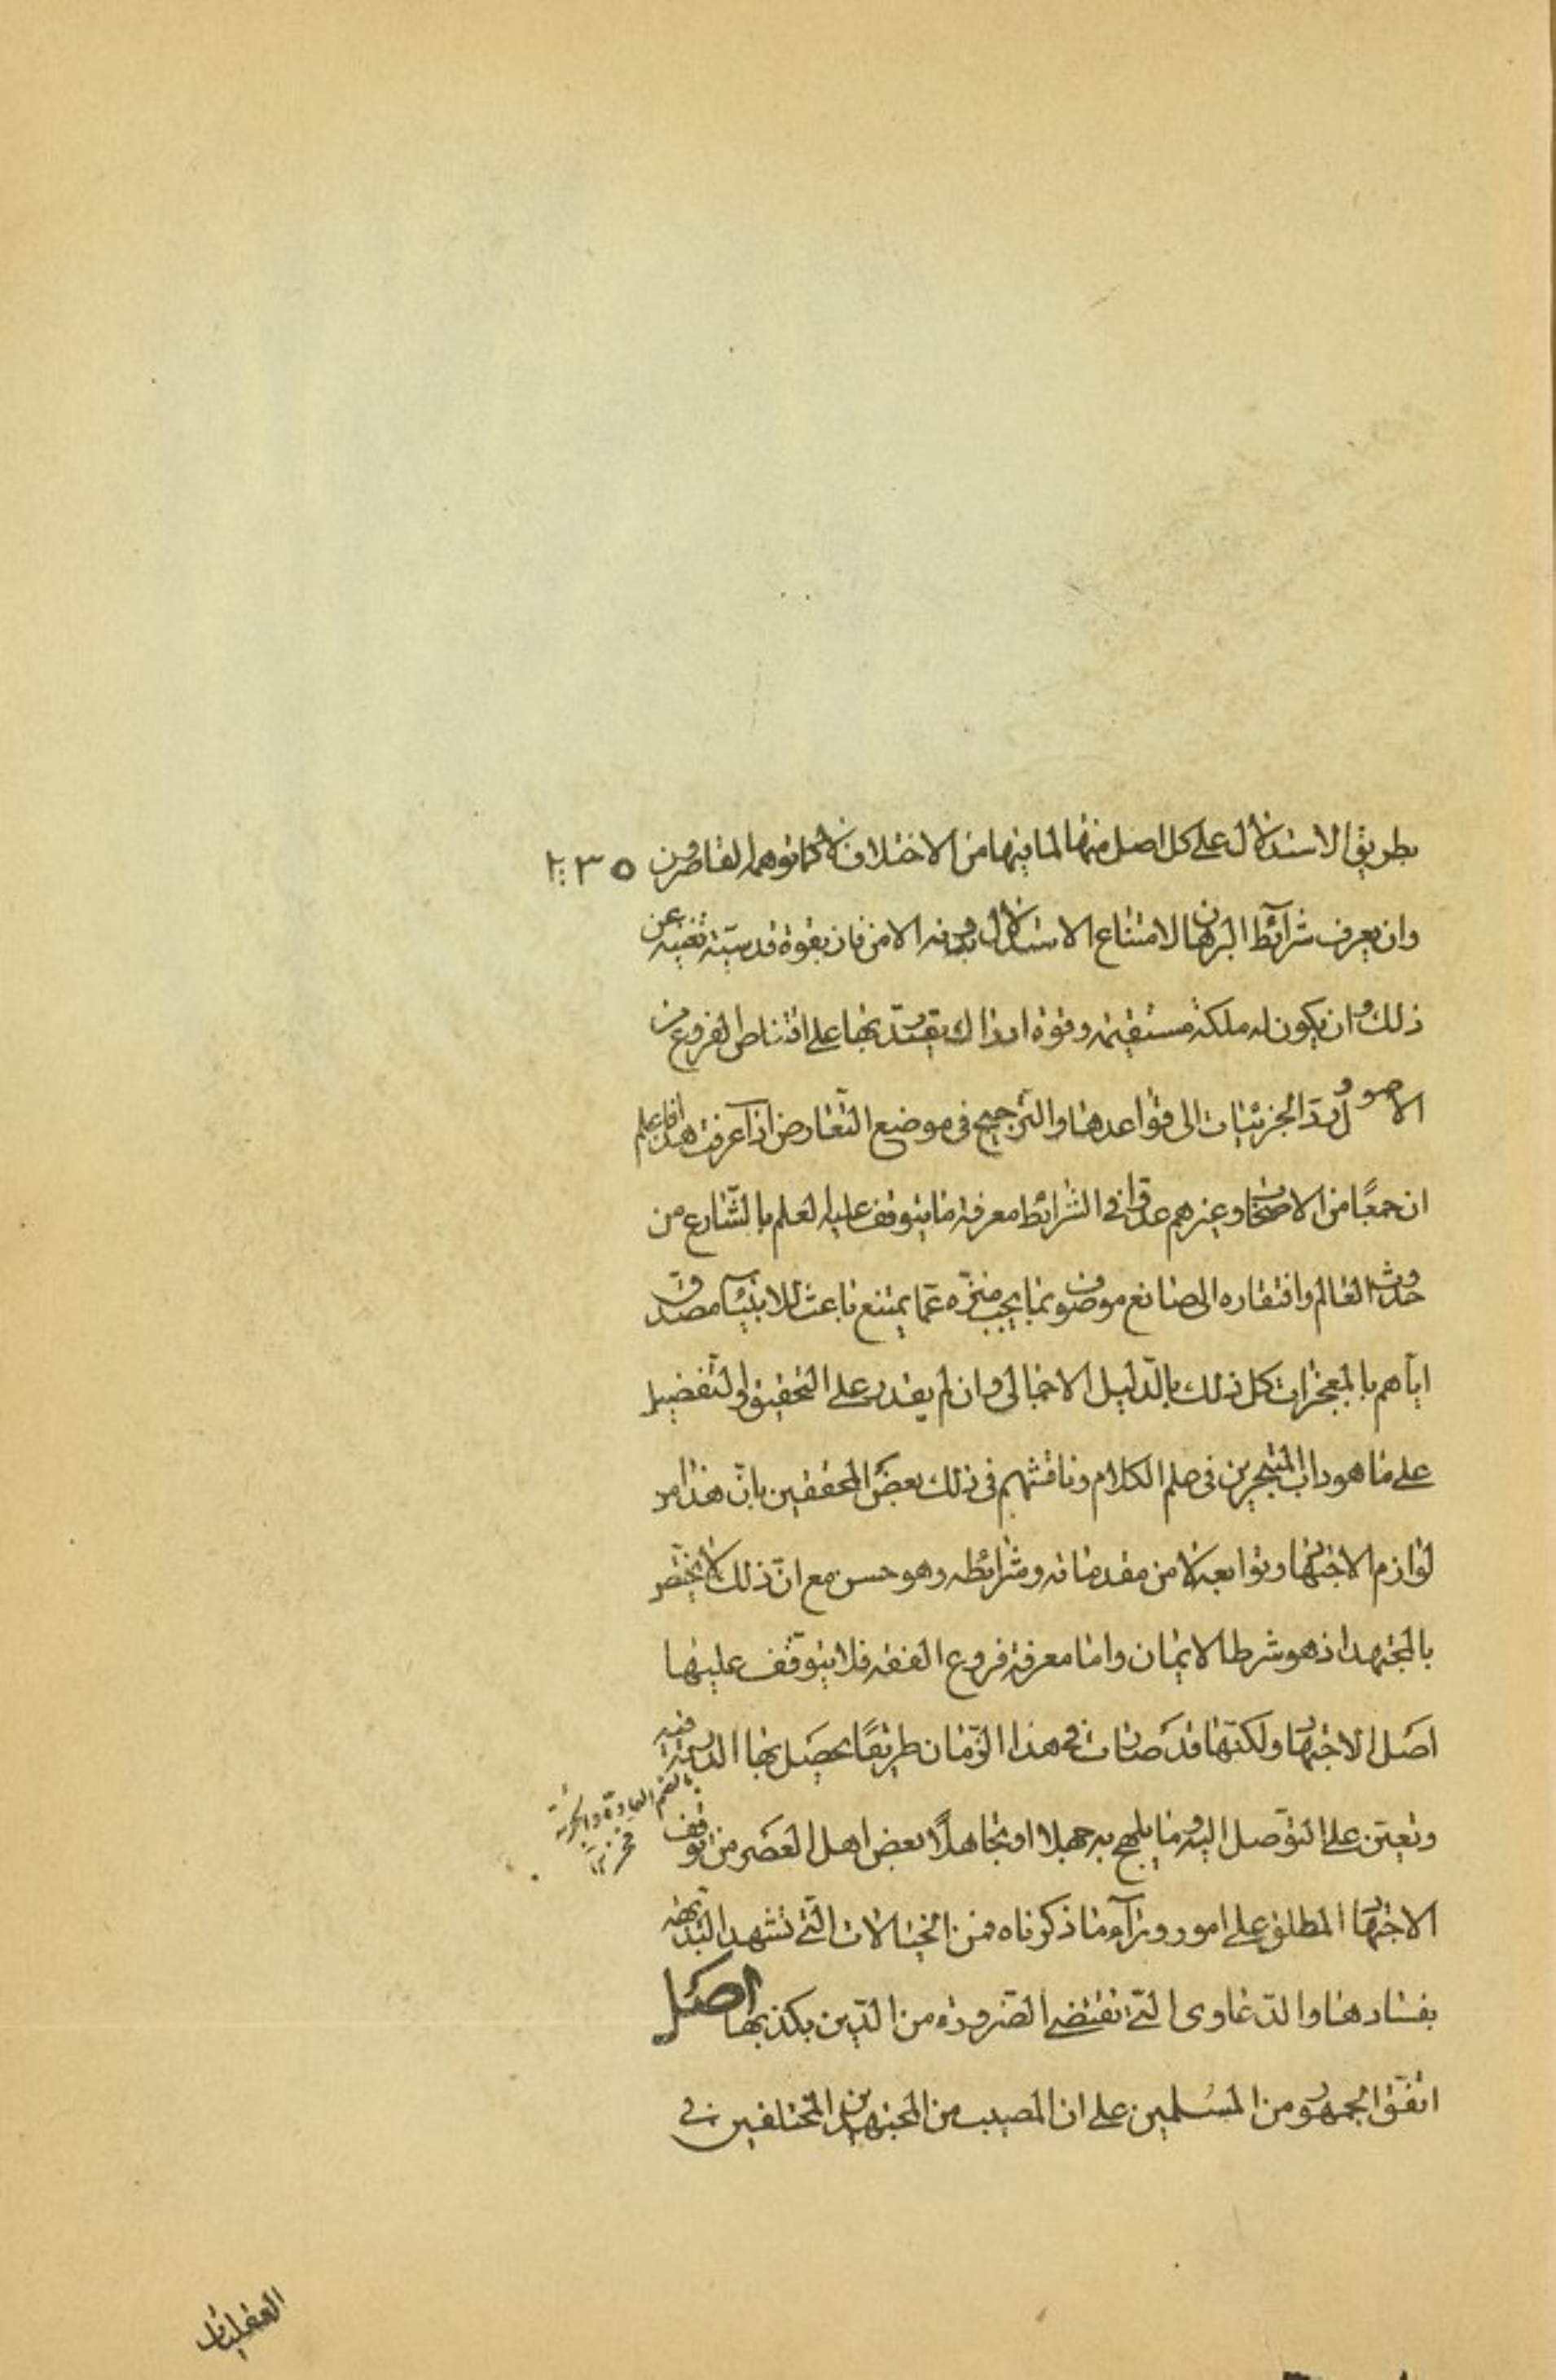 بطريق الاستدلال على كل اصل منها لما فيها من الاختلاف لا كما توهمه القاصرون
وان يعرف شرآئط البرهان لامتناع الاستدلال بدونه الا من فاز بقوة قدسيّة تغنيه عن
ذلك وان يكون له ملكة مستقيمة وقوة ادراك يقتدر بها على اقتناص الفروع من
الاصول وردّ الجزئيات الى قواعدها والترجيح في موضع التّعارض اذا عرفت هذا فاعلم
ان جمعًا من الاصحاب وغيرهم عدّوا في الشرائط معرفة ما يتوقف عليه العلم بالشّارع من
حدوث العالم وافتقاره الى صانع موصوف بما يجب منزّه عمّا يمتنع باعث للانبيآء مصدّق
ايّاهم بالمعجزات كل ذلك بالدّليل الاجمالى وان لم يقدر على التحقيق والتّفصيل
على ما هو داب المتبحرين في علم الكلام وناقشهم في ذلك بعض المحققين بانّ هذا من
لوازم الاجتهاد وتوابعه لا من مقدماته وشرائطه وهو حسن مع انّ ذلك لا يختصّ
بالمجتهد اذ هو شرط الايمان واما معرفة فروع الفقه فلا يتوقّف عليها
اصل الاجتهاد ولكنّها قد صارت في هذا الزّمان طريقًا يحصل بها الدربة فيه
بالضم العادة والجرئة
وتعين على التوّصل اليه وما يلهج به جهلا او تجاهلًا بعض اهل العصر من توقف
الاجتهاد المطلق على امور ورآء ما ذكرناه فمن الخيالات الّتي تشهد البديهة
بفسادها والدّعاوى التّي تقتضي الضّرورة من الدّين بكذبها اصل
اتفّق الجمهور من المسلمين على ان المصيب من المجتهدين المختلفين في
العقليات